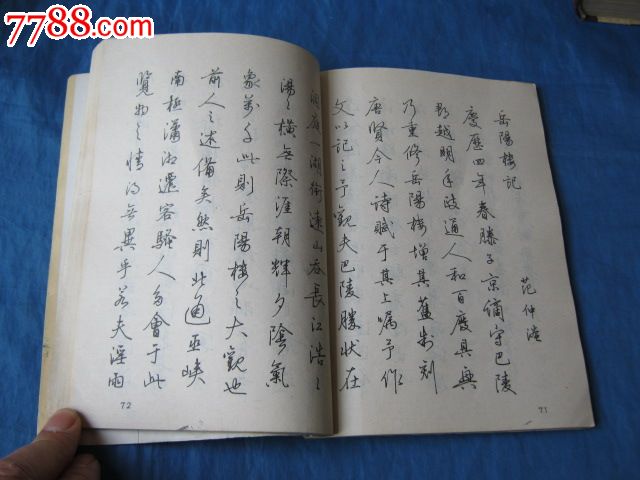 7788.com
岳陽樓記
范仲淹
慶歷四年春滕子京謫守巴陵
郡越明年政通人和百廢具興
乃重修岳陽樓增其舊制刻
唐賢今人诗賦于其上嘱予作
文以記之予觀夫巴陵勝状在
71
洞庭一湖銜遠山吞長江浩〻
湯〻橫無際涯朝輝夕陰氣
象萬千此則岳陽樓之大觀也
前人之述備矣然則北通巫峽
南極瀟湘遷客騷人多會于此
覽物之情得無異乎若夫淫雨
72